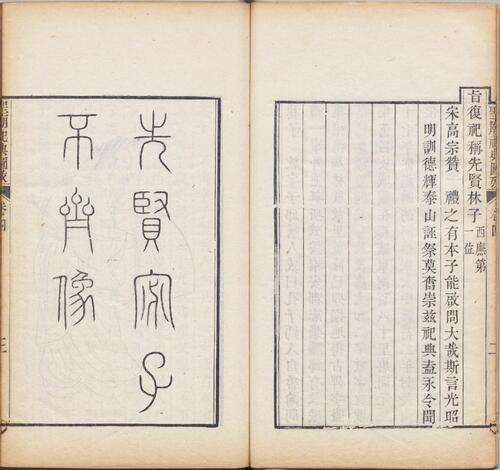 旨復祀稱先賢林子西廡第一位
宋高宗贊　禮之有本子能啟問大哉斯言光昭
明訓德輝泰山誣祭莫奮崇茲祀典益永令聞
先賢宓子
不齊像
卷四